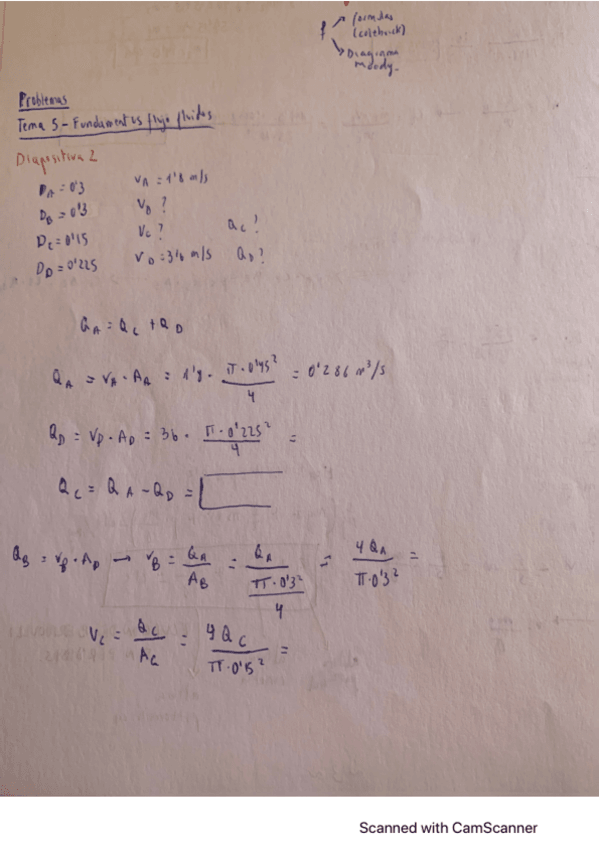 f → formulas
(colebrook)
→ Diagrama
moody
Problemas
Tema 5 - Fundamentos flujo fluidos
Diapositiva 2
D_A = 0'3 v_A = 1'8 m/s
D_B = 0'3 v_B ?
D_C = 0'15 v_C ? Q_C ?
D_D = 0'225 v_D = 3'6 m/s Q_D ?
Q_A = Q_C + Q_D
Q_A = v_A · A_A = 1'8 · π · 0'45² / 4 = 0'286 m³/s
Q_D = v_D · A_D = 36 · π · 0'225² / 4 =
Q_C = Q_A - Q_D =
Q_B = v_B · A_D → v_B = Q_A / A_B = Q_A / (π · 0'3² / 4) = 4 Q_A / π · 0'3² =
v_C = Q_C / A_C = 4 Q_C / π · 0'15² =
Scanned with CamScanner